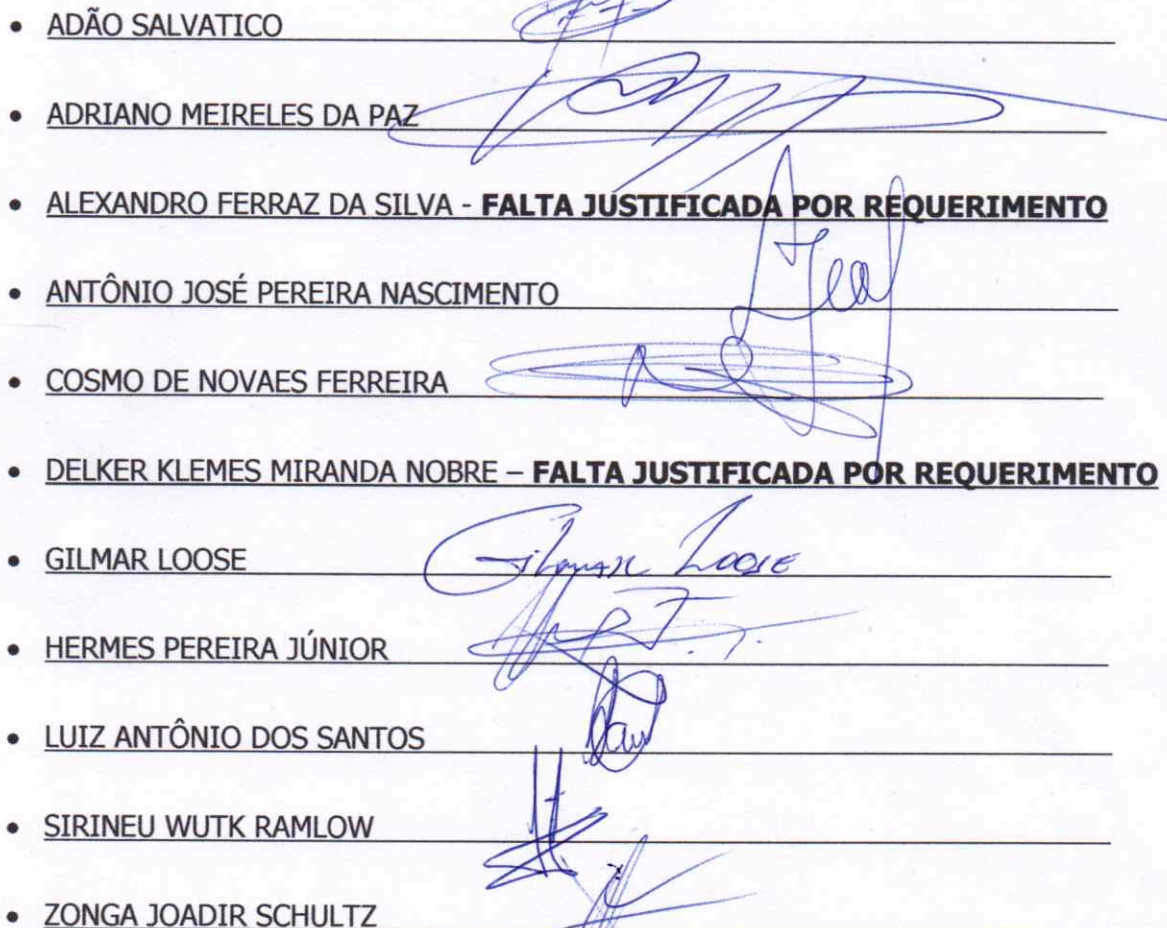 • ADÃO SALVATICO
• ADRIANO MEIRELES DA PAZ
• ALEXANDRO FERRAZ DA SILVA - FALTA JUSTIFICADA POR REQUERIMENTO
• ANTÔNIO JOSÉ PEREIRA NASCIMENTO
• COSMO DE NOVAES FERREIRA
• DELKER KLEMES MIRANDA NOBRE – FALTA JUSTIFICADA POR REQUERIMENTO
• GILMAR LOOSE Gilmar Loose
• HERMES PEREIRA JÚNIOR
• LUIZ ANTÔNIO DOS SANTOS
• SIRINEU WUTK RAMLOW
• ZONGA JOADIR SCHULTZ